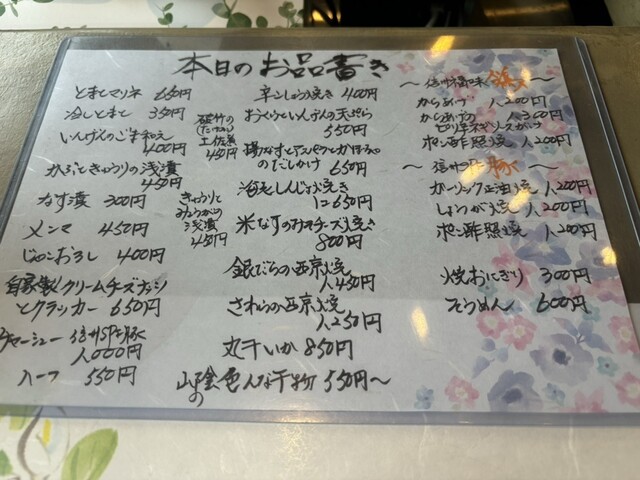 本日のお品書き
とまとマリネ 650円
冷しとまと 350円
いんげんのごま和え
400円
かぶときゅうりの浅漬
450円
なす漬 300円
メンマ 450円
じゃこおろし 400円
自家製クリームチーズ
とクラッカー 650円
チャーシュー 信州SPF豚
1,000円
ハーフ 550円
破竹の
(たけのこ)
土佐煮
450円
きゅうりと
みょうがの
浅漬
450円
辛しょう焼き 400円
おくらといんげんの天ぷら
550円
揚なすとアスパラとかぼちゃ
のだしかけ 650円
海老しんじょ焼き
1コ 650円
米なすのみそチーズ焼き
800円
銀だらの西京焼
1,450円
さわらの西京焼
1,250円
丸干いか 850円
山陰の金色んな干物 550円〜
〜信州福味鶏〜
からあげ 1,200円
からあげの
ピリ辛ネギソースかけ 1,300円
ポン酢照焼 1,200円
〜信州SPF豚〜
ガーリック正油焼 1,200円
しょうが焼 1,200円
ポン酢照焼 1,200円
焼おにぎり 300円
そうめん 600円